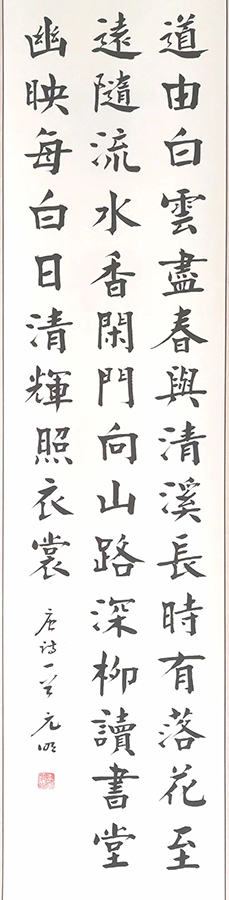 道由白雲盡春與清溪長時有落花至
遠隨流水香閑門向山路深柳讀書堂
幽映每白日清輝照衣裳
唐诗一首 元明